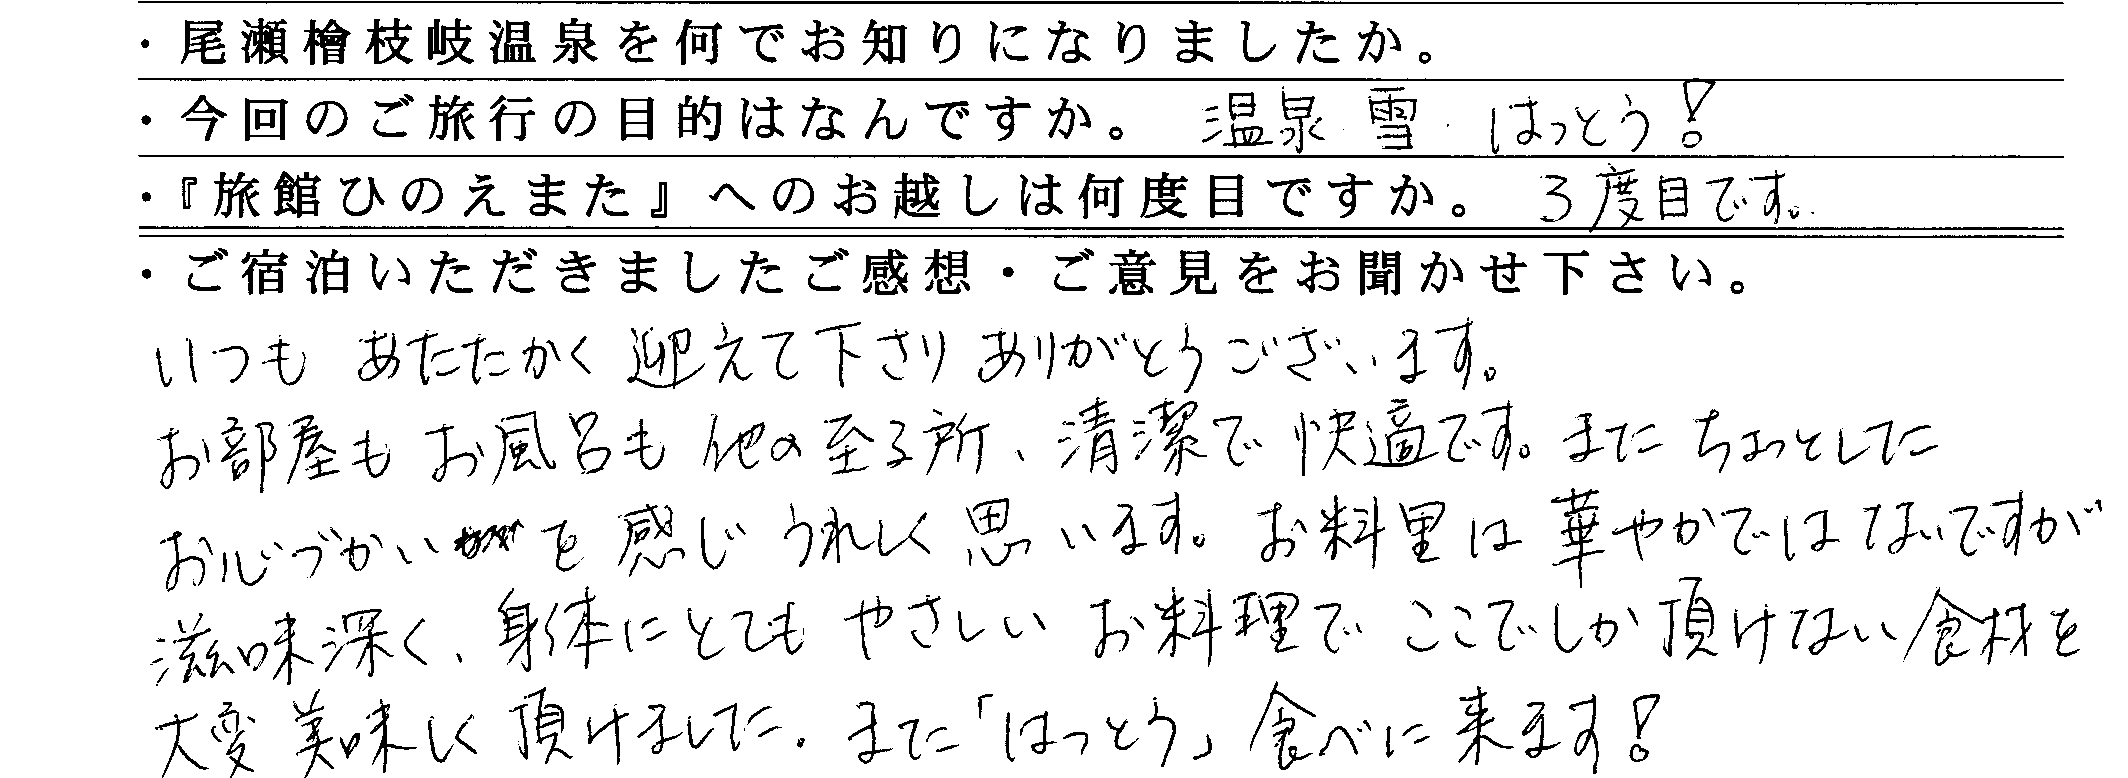 ・尾瀬檜枝岐温泉を何でお知りになりましたか。
・今回のご旅行の目的はなんですか。 温泉・雪・はっとう!
・『旅館ひのえまた』へのお越しは何度目ですか。 3度目です。
・ご宿泊いただきましたご感想・ご意見をお聞かせ下さい。
いつも あたたかく 迎えて下さり ありがとうございます。
お部屋も お風呂も 他の至る所、清潔で 快適です。また ちょっとした
お心づかいを 感じ うれしく 思います。お料里は 華やかでは ないですが
滋味深く、身体に とても やさしい お料理で ここでしか 頂けない 食材を
大変 美味しく 頂けました。また「はっとう」食べに 来ます!